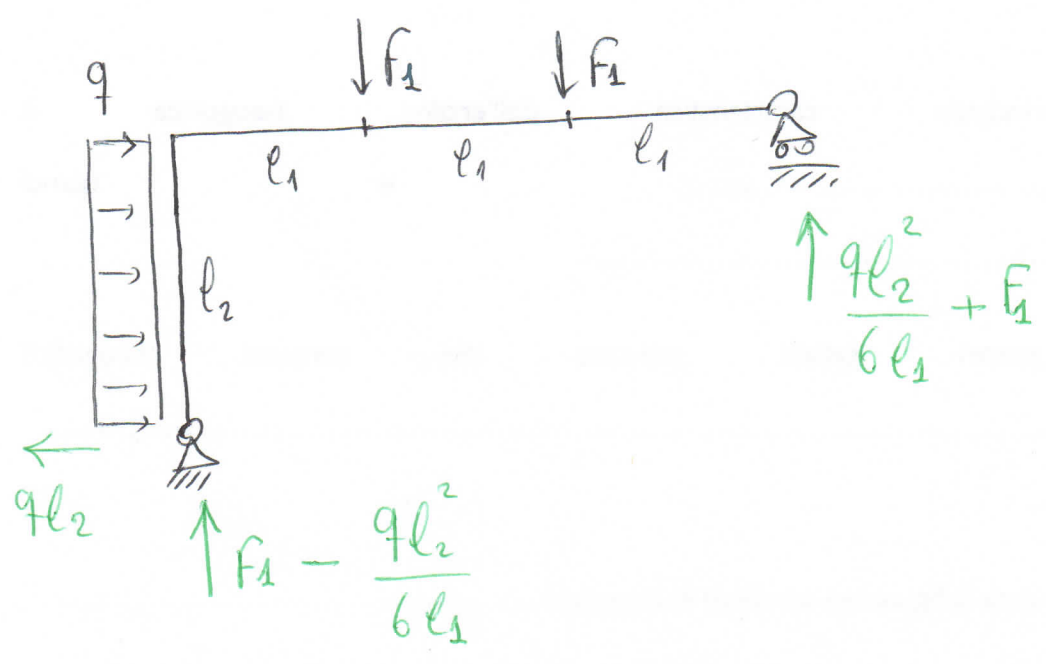 F₁ F₁
q
l₁ l₁ l₁
l₂
ql₂²/6l₁ + F₁
ql₂
F₁ − ql₂²/6l₁